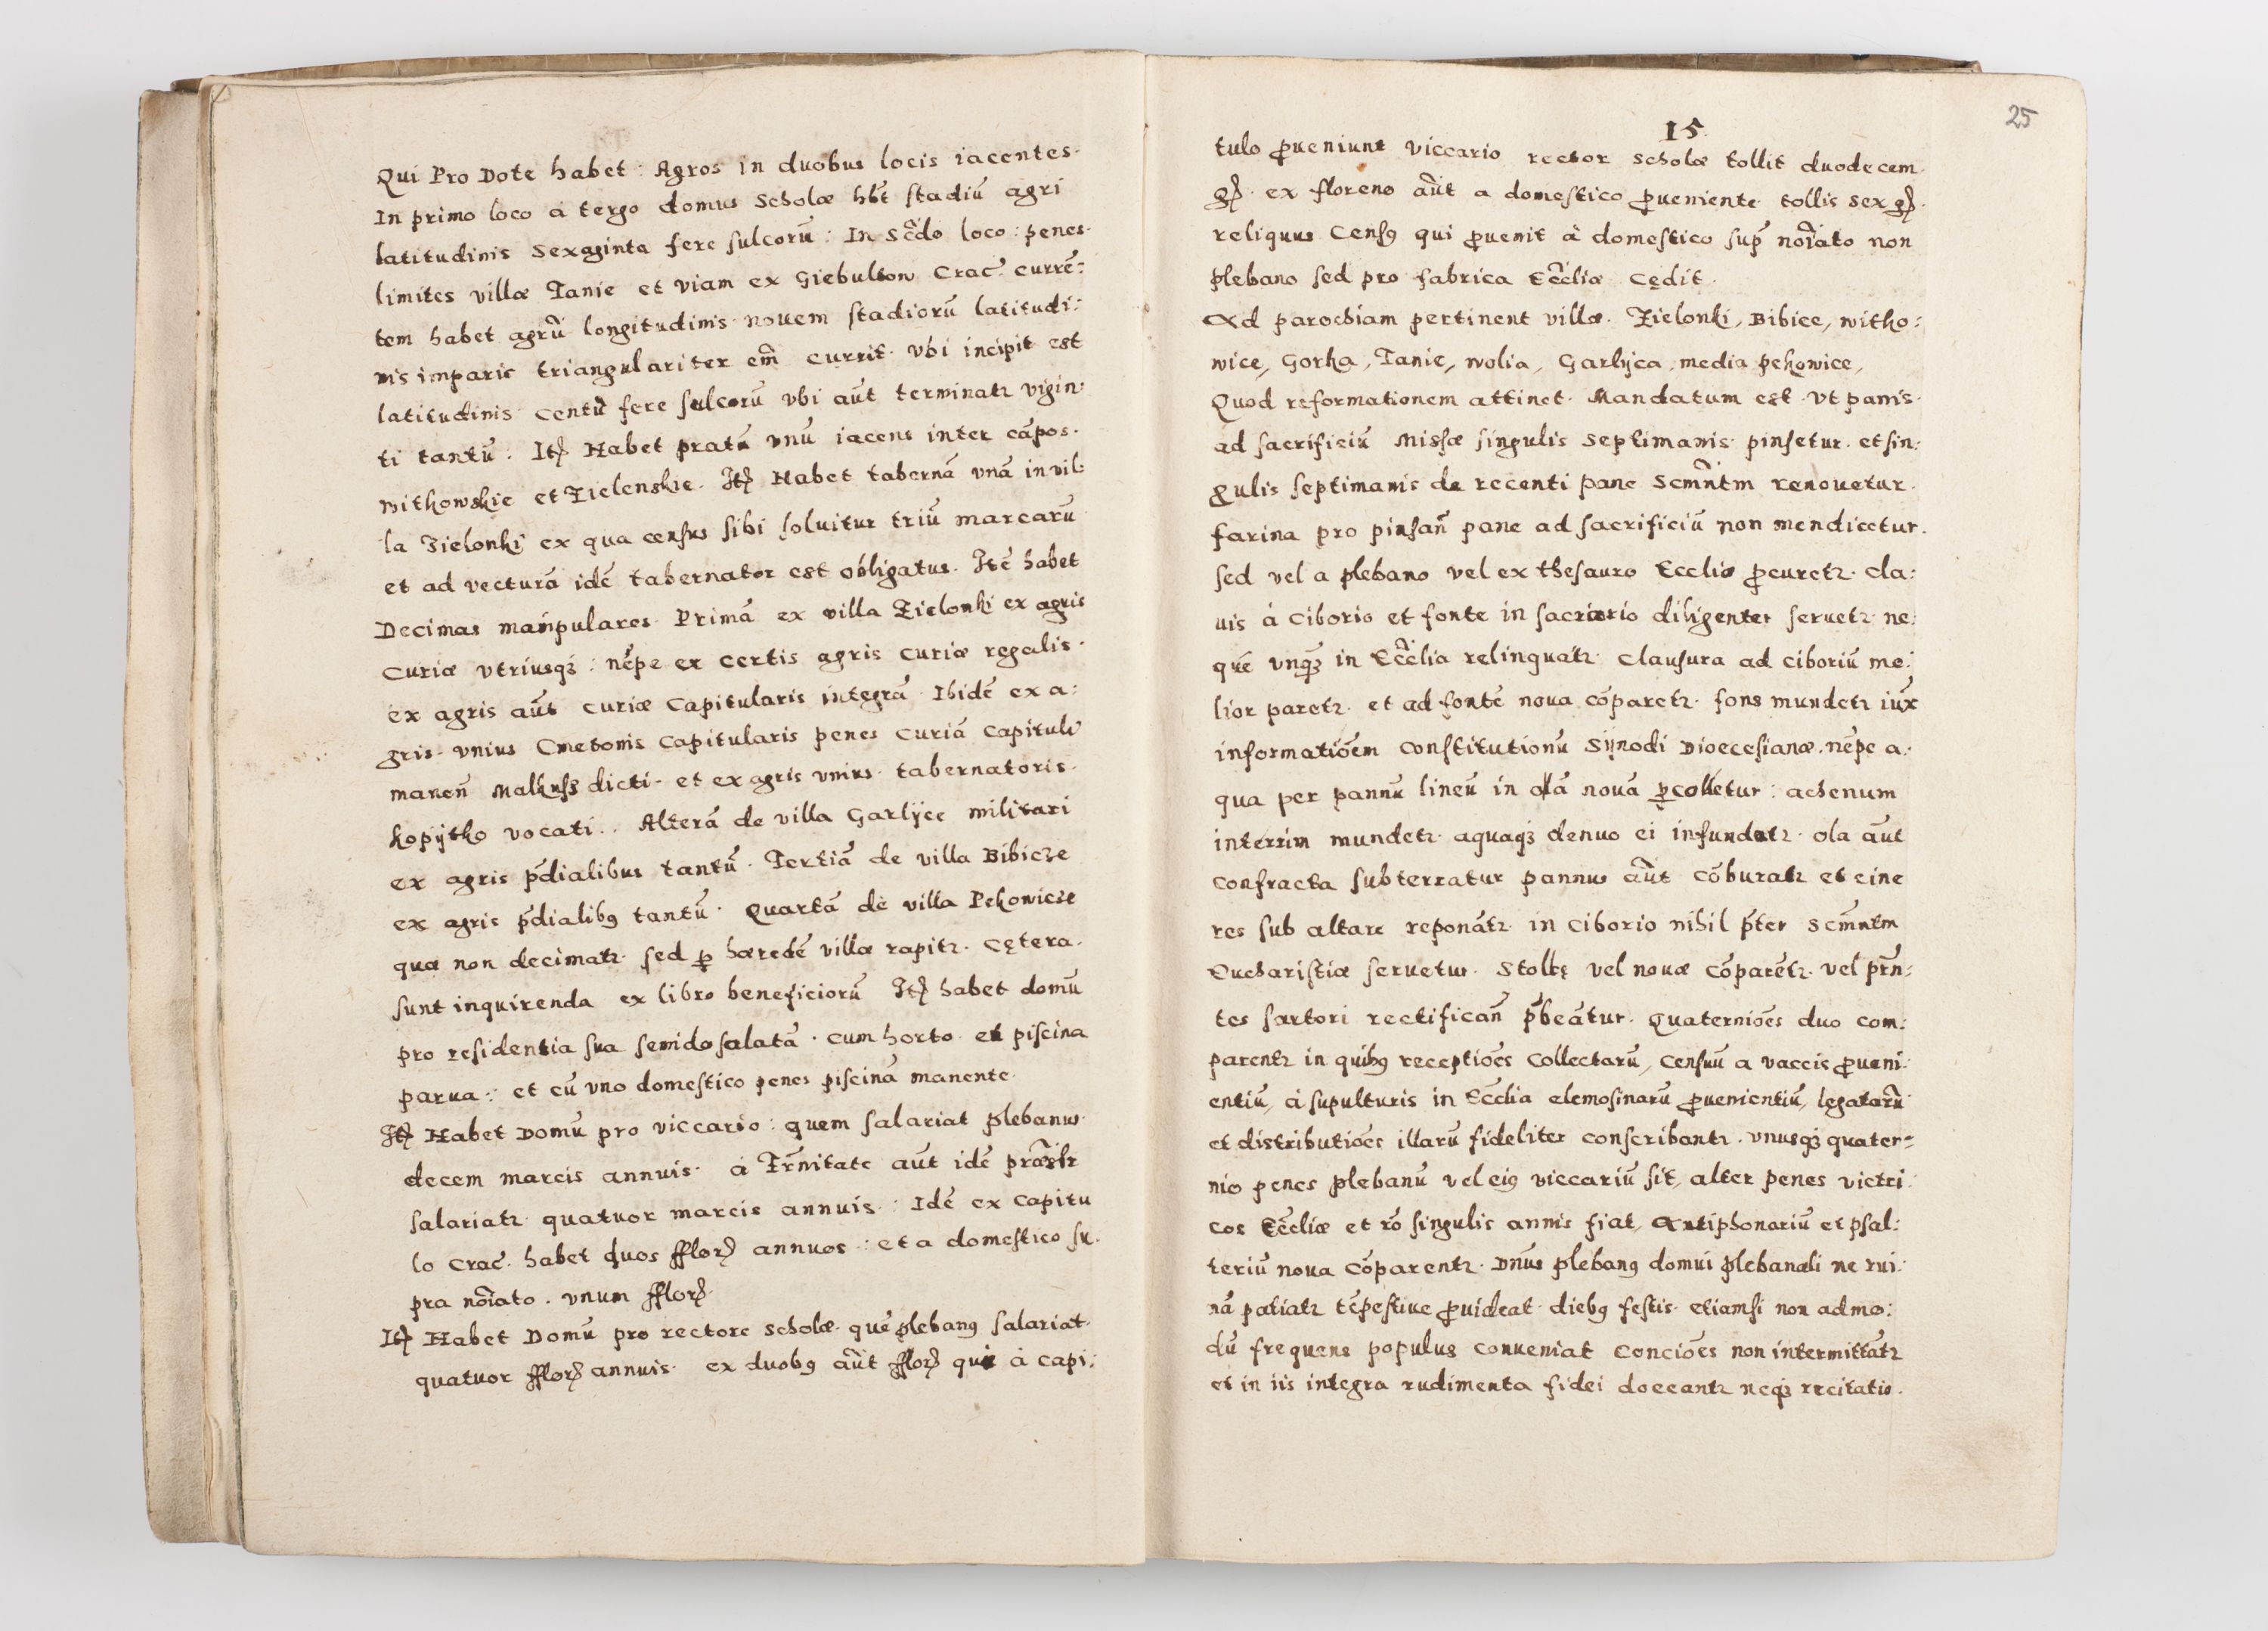 Qui Pro Dote habet : Agros in duobus locis iacentes.
In primo loco á tergo domus Scholæ hb̃t stadiũ agri
latitudinis Sexaginta fere sulcorũ : In Sc̃do loco : penes.
limites villæ Tanie et viam ex Giebulton Crac̃. currẽ:
tem habet agrũ longitudinis nouem stadiorũ latitudi:
nis imparis triangulariter em̃ currit. vbi incipit est
latitudinis centũ fere sulcorũ vbi aũt terminatr vigin:
ti tantũ. Itẽ Habet pratũ vnũ iacens inter cãpos.
Withowskie et Zielenskie. Itẽ Habet tabernã vnã in vil:
la Zielonki ex qua census sibi soluitur triũ marcarũ
et ad vecturã idẽ tabernator est obligatus. Itẽ habet
Decimas manipulares. Primã ex villa Zielonki ex agris
Curiæ vtriusq; : nẽpe ex certis agris curiæ regalis.
ex agris aũt curiæ Capitularis integrã. Ibidẽ ex a:
gris vnius Cmetonis Capitularis penes Curiã Capituli
maneñ Malkuss dicti. et ex agris vnius tabernatoris.
kopÿtko vocati.. Alterã de villa Garlÿce militari
ex agris p̃dialibus tantũ. Tertiã de villa Bibicze
ex agris p̃dialibꝰ tantũ. Quartã de villa Pekowicze
quæ non decimatr sed ꝑ hæredẽ villæ rapitr. Cętera.
sunt inquirenda ex libro beneficiorũ Itẽ habet domũ
pro residentia sua semidesolatã. cum horto. et piscina
parua : et cũ vno domestico penes piscinã manente.
Itẽ Habet Domũ pro viccario : quem salariat plebanus.
decem marcis annuis. á Tr̃nitate aũt idẽ
salariatr quatuor marcis annuis : Idẽ ex Capitu
lo Crac̃. habet duos fflor̃ annuos : et a domestico su.
pra nõiato. vnum fflor̃.
Itẽ Habet Domũ pro rectore Scholæ. quẽ plebanꝰ salariat.
quatuor fflor̃ annuis. ex duobꝰ aũt fflor̃ qui á capi:
25
15.
tulo ꝓueniunt viccario rector Scholæ tollit duodecem.
gr̃. ex floreno aũt a domestico ꝓueniente tollis Sex gr̃.
reliquus Censꝰ qui ꝓuenit á domestico sup̃ nõiato non
plebano sed pro fabrica Ecc̃liæ cędit.
Ad parochiam pertinent villæ. Zielonki, Bibice, Witko:
wice, Gorka, Tanie, Wolia, Garlÿca, media pekowice,
Quod reformationem attinet. Mandatum est. Vt panis.
ad sacrificiũ Missæ singulis Septimanis pinsetur. et sin:
gulis septimanis de recenti pane Scm̃ntm renouetur.
farina pro pinsañ pane ad sacrificiũ non mendicetur.
sed vel a plebano vel ex thesauro Eccliæ ꝓcuretr. cla:
uis á ciborio et fonte in sacrario diligenter seruetr. ne:
que vnq̃ in Ecc̃lia relinquatr. Clausura ad ciboriũ me:
lior paretr. et ad fontẽ noua cõparetr. fons mundetr iux̃
informatiõem constitutionũ Sÿnodi Dioecesianæ. nẽpe a:
qua per pannũ lineũ in olã nouã ꝑcolletur : achenum
interim mundetr. aquaq; denuo ei infundatr. ola aũt
confracta subterratur pannus aũt cõburatr et cine
res sub altare reponãtr. in Ciborio nihil p̃ter Scm̃ntm
Eucharistiæ seruetur. Stolę vel nouæ cõparẽtr. vel pr̃n:
tes sartori rectificañ p̃beãtur. Quaterniões duo com:
parentr in quibꝰ receptiões collectarũ, censuũ a vaccis ꝓueni:
entiũ, á supulturis in Ecc̃lia elemosinarũ ꝓuenientiũ, legatarũ
et distributiões illarũ fideliter conscribantr. vnusq; quater=
nio penes plebanũ vel eiꝰ viccariũ sit, alter penes victri:
cos Ecc̃liæ et rõ singulis annis fiat, Antiphonariũ et psal:
teriũ noua cõparentr. Dñus plebanꝰ domui plebanali ne rui:
nã patiatr tẽpestiue ꝓuideat. diebꝰ festis. etiamsi non admo:
dũ frequens populus conueniat Conciões non intermittãtr
et in iis integra rudimenta fidei doceantr neq; recitatio.